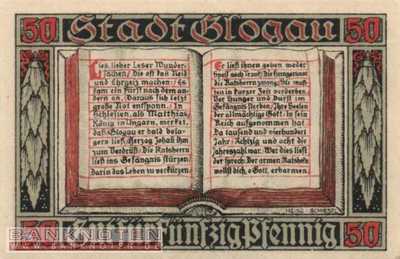 50 Stadt Glogau 50
Lies, lieber Leser Wunder-
sachen / Die oft han Neid
und Ehrgeiz machen: Es
kam ein Fürst nach dem an-
dern an. Daraus sich letzt
große Not entspann. In
Schlesien, als Matthias,
König in Ungarn, merket,
daß Glogau er bald belä-
gern ließ, Herzog Johall ihm
zum Verdruß: Die Ratsherrn
ließ ins Gefängnis stürzen,
Darin das Leben zu verkürzen.
Er ließ ihnen geben weder
Speis noch Trank; die
die Ratsherrn
ten in kurzer Zeit verderben.
Vor Hunger und Durst im
Gefängnis sterben. Ihre Seelen
der allmächtige Gott. In sein
Reich aufgenommen hat.
Da tausend und vierhundert
Jahr: Achtzig und acht die
Jahreszahl war. Wer dies liest
der sprech: Der armen Ratsherrn
wollst dich, o Gott, erbarmen.
HEINZ SCHIESTL
50 Fünfzig Pfennig 50
BANKNOTEN